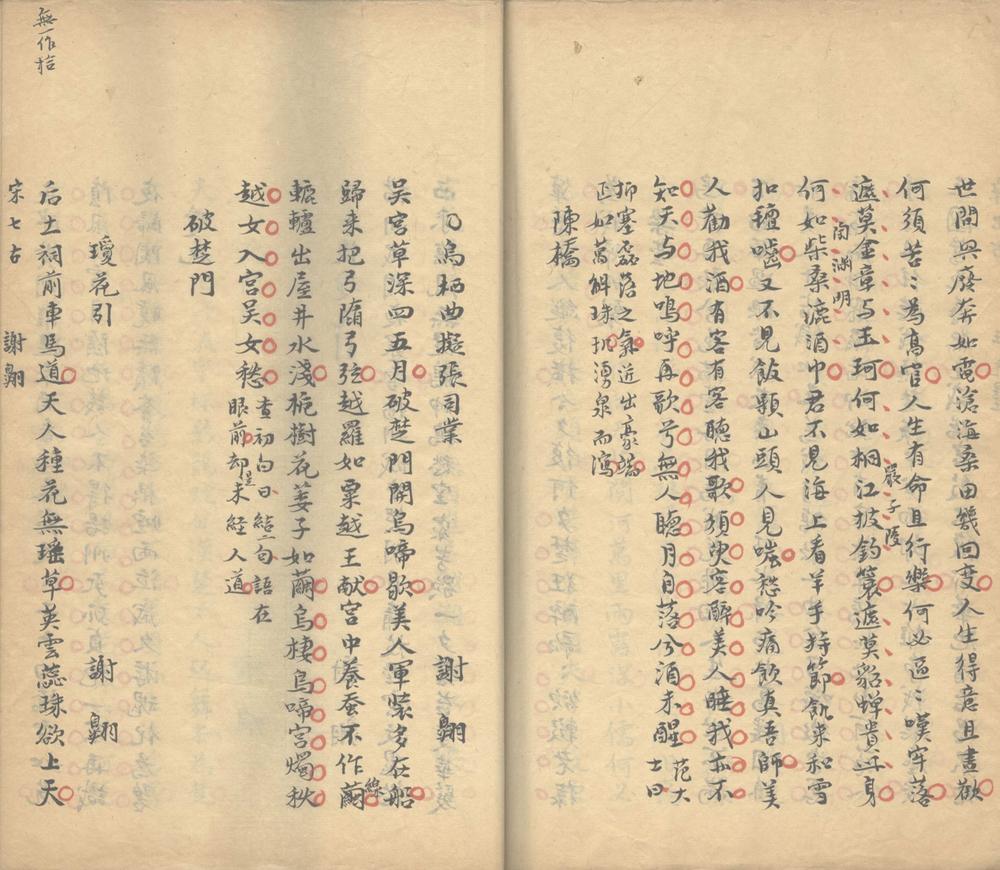 世間興廢奔如電滄海桑田幾回变人生得意且盡歡
何須苦〻為高官人生有命且行樂何必區〻嘆牢落
嚴子陵
遮莫金章与玉珂何如桐江披釣簑遮莫貂蟬貴近身
陶渊明
何如柴桑漉酒巾君不見海上看羊手持節飢来和雪
扣氊嚙又不見飯顆山頭人見嗤愁吟痛飲真吾師美
人勸我酒有客有客聽我歌須臾客醉美人睡我亦不
知天与地嗚呼再歌兮無人聽月自落兮酒未醒
范大士曰
抑塞磊落之氣近出豪端
正如萬斛珠玑湧泉而瀉
陳橋
烏栖曲擬張司業
謝翱
吳宮草深四五月破楚門開烏啼歇美人軍裝多在船
歸来把弓隨弓弦越羅如粟越王献宮中養蚕不作繭
線
轆轤出屋井水淺栀樹花萎子如繭烏棲烏啼宮燭秋
越女入宮吳女愁
查初白曰結二句語在
眼前却是未経人道
破楚門
瓊花引
謝翱
后土祠前車馬道天人種花無瑶草英雲蕊珠欲上天
宋七古
謝翱
無一作拾